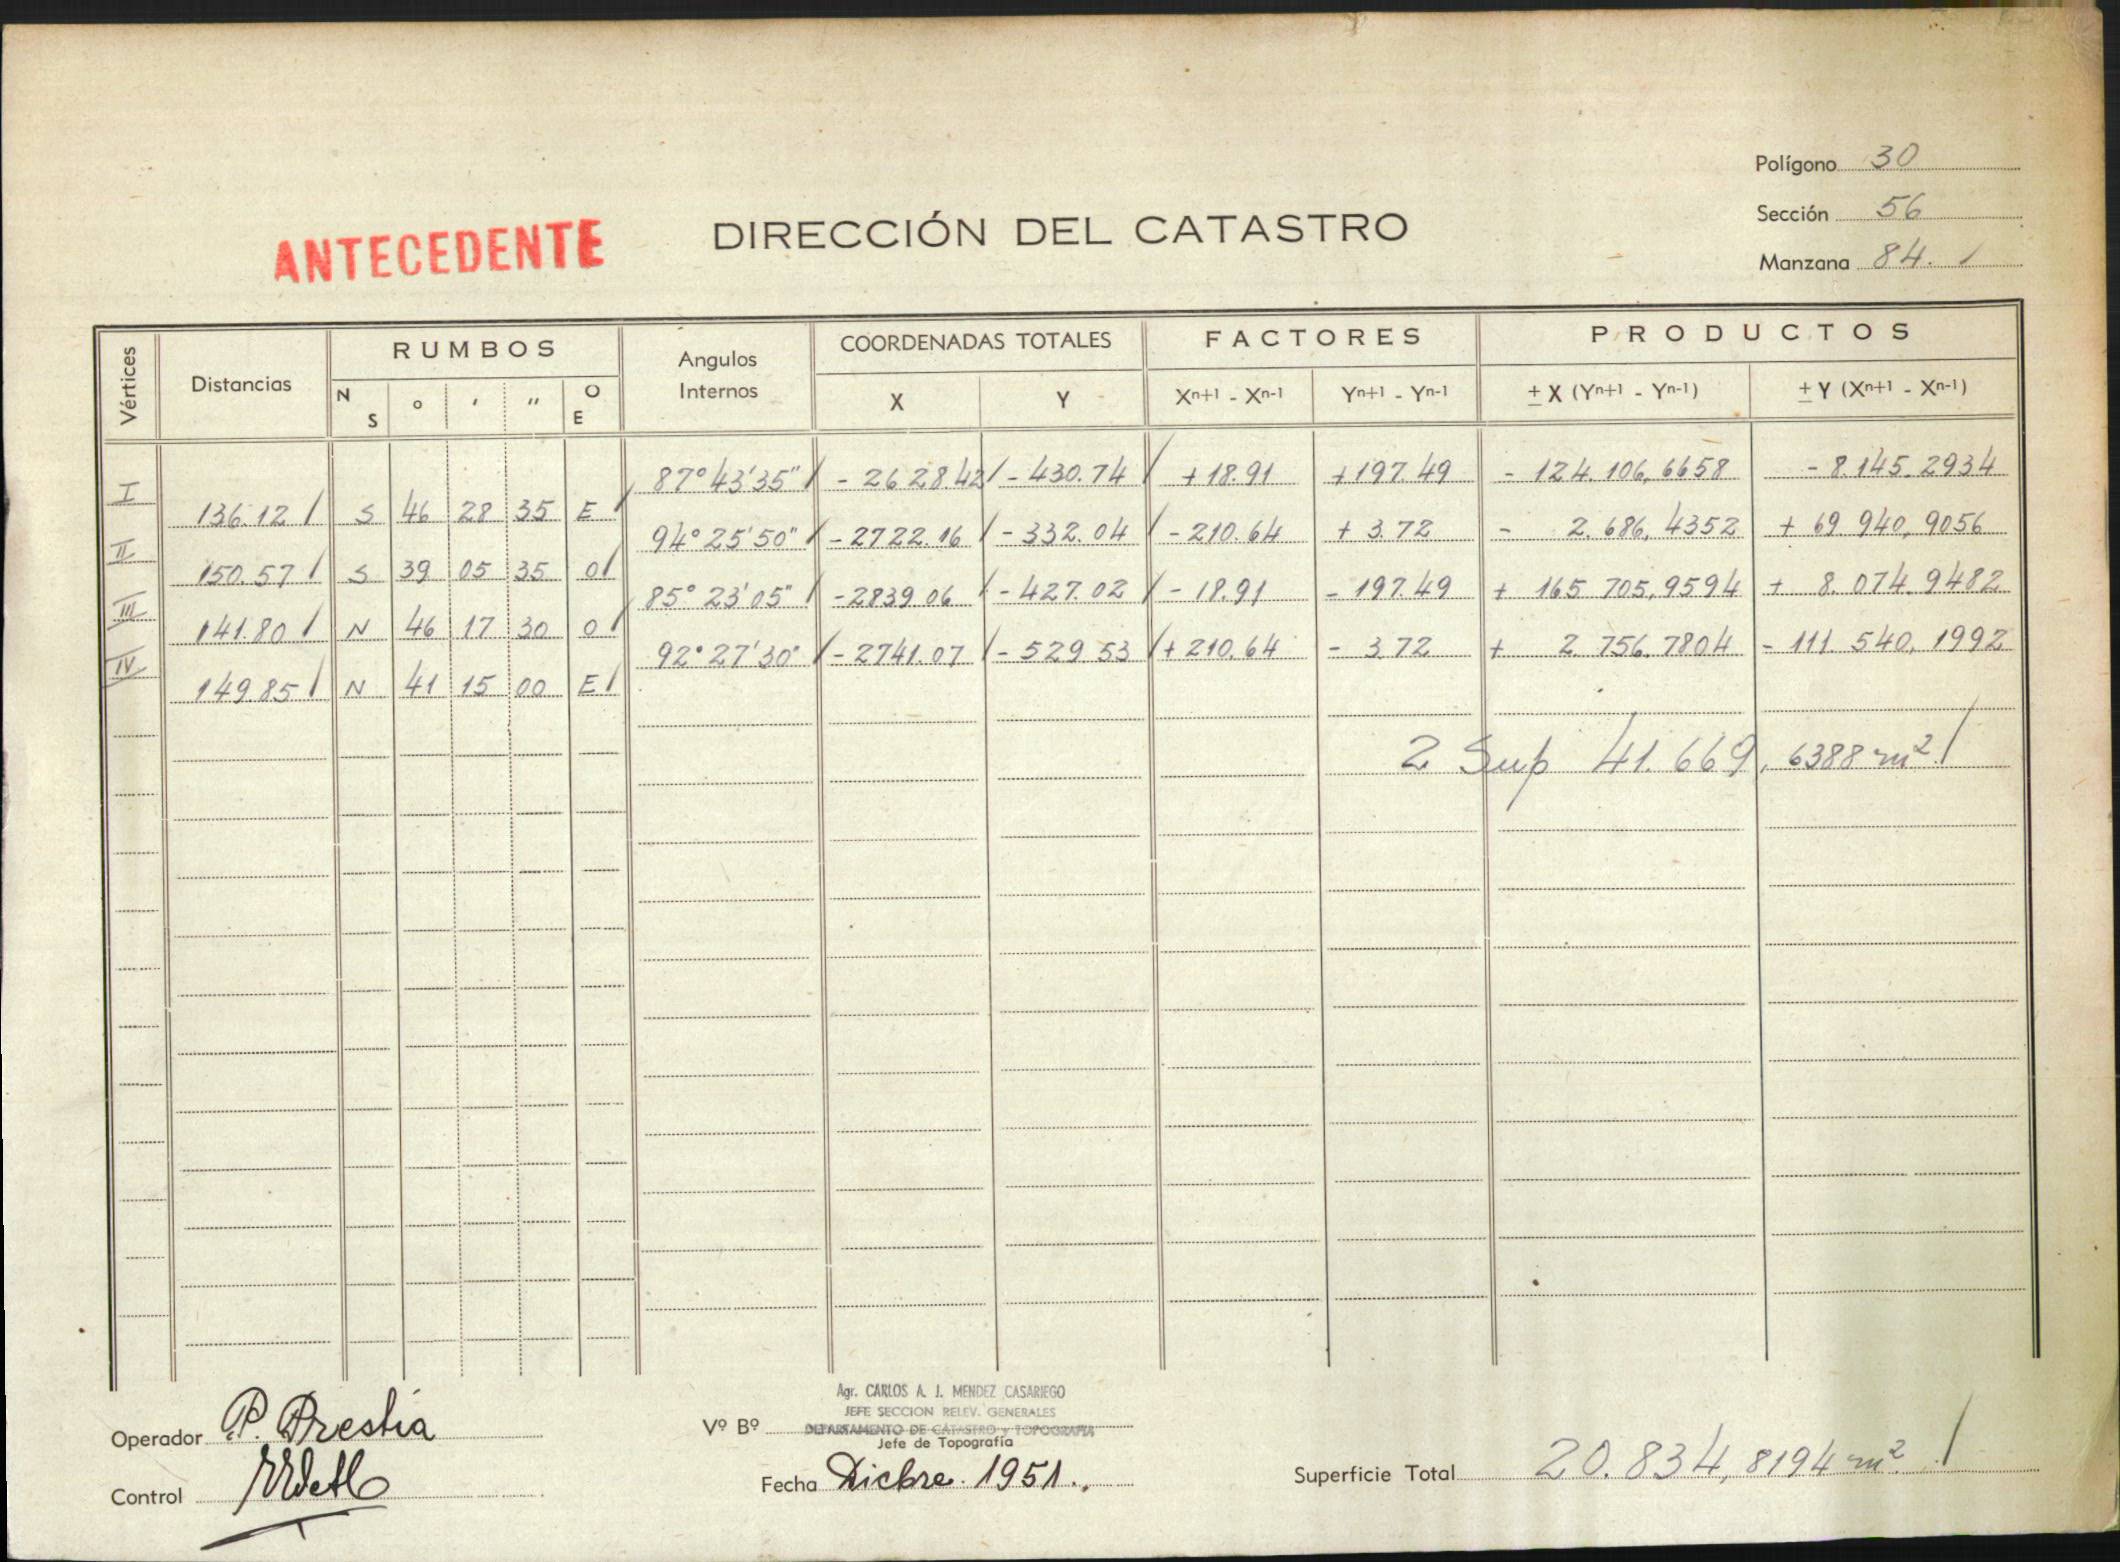 Polígono 30
Sección 56
Manzana 84.
ANTECEDENTE
DIRECCIÓN DEL CATASTRO
Vértices Distancias RUMBOS Angulos Internos COORDENADAS TOTALES FACTORES PRODUCTOS
N S ° ' " O E X Y Xn+1 - Xn-1 Yn+1 - Yn-1 ± X (Yn+1 - Yn-1) ± Y (Xn+1 - Xn-1)
87°43'35" - 2628.42 - 430.74 + 18.91 + 197.49 - 124.106,6658 - 8.145.2934
I 136.12 S 46 28 35 E
94°25'50" - 2722.16 - 332.04 - 210.64 + 3.72 - 2.686,4352 + 69.940,9056
II 150.57 S 39 05 35 O
85°23'05" - 2839.06 - 427.02 - 18.91 - 197.49 + 165 705,9594 + 8.074.9482
III 141.80 N 46 17 30 O
92°27'30" - 2741.07 - 529.53 + 210.64 - 3.72 + 2 756.7804 - 111.540,1992
IV 149.85 N 41 15 00 E
2 Sup 41.669,6388 m²
Agr. CARLOS A. J. MENDEZ CASARIEGO
JEFE SECCION RELEV. GENERALES
DEPARTAMENTO DE CATASTRO y TOPOGRAFIA
Operador P. Prestia Vº Bº
Jefe de Topografía
Control
Fecha Dicbre. 1951.
Superficie Total 20.834,8194 m²